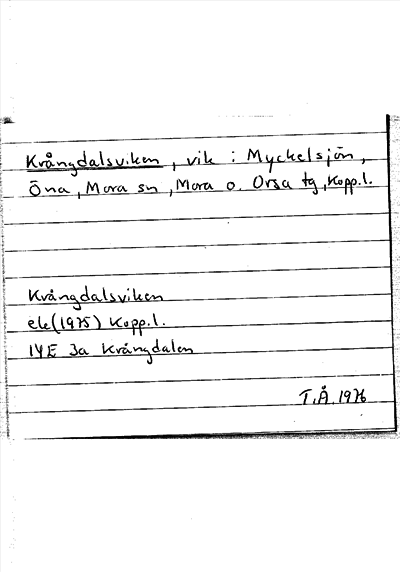 Krångdalsviken, vik i Myckelsjön,
Öna, Mora sn, Mora o. Orsa tg, Kopp.l.
Krångdalsviken
ek(1975) Kopp.l.
14E 3a Krångdalen
T.Å. 1976